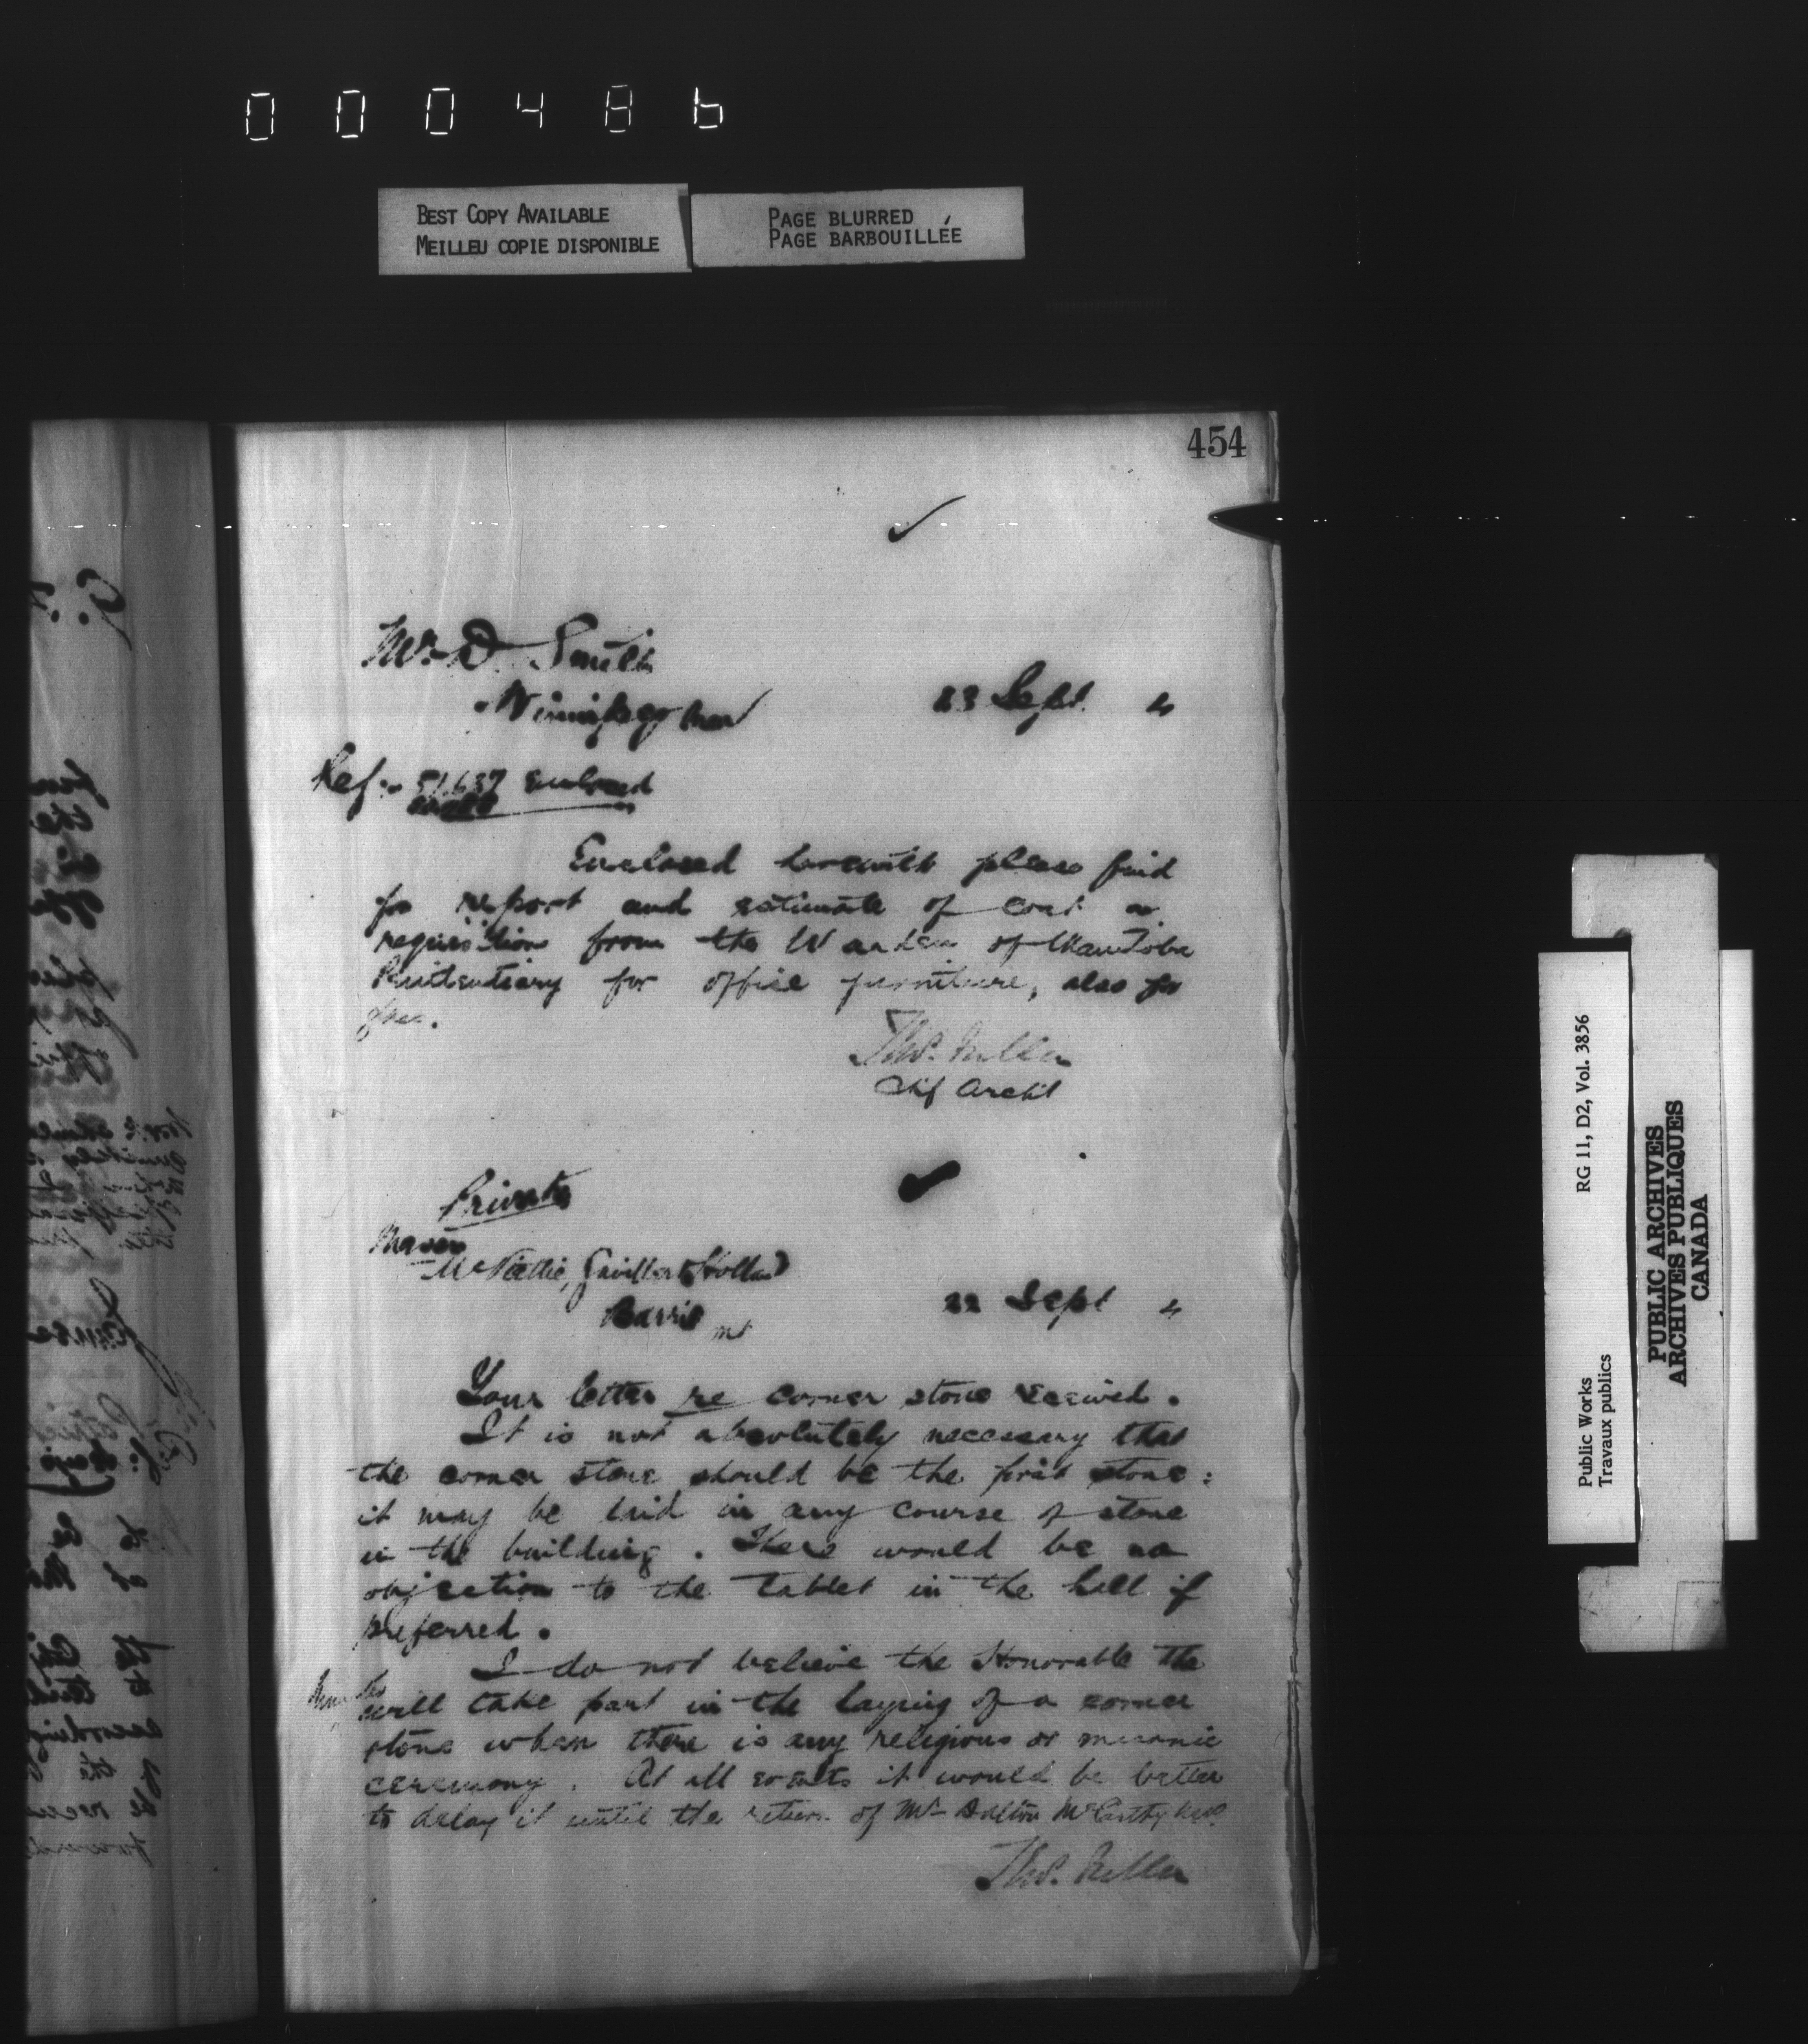 000486
BEST COPY AVAILABLE
MEILLEU COPIE DISPONIBLE
PAGE BLURRED
PAGE BARBOUILLÉE
454
Mr. D. Smith
Winnipeg Man
23 Sept. 4
Ref:- 51.637 enclosed
Enclosed herewith please find
for report and estimate of cost a
requisition from the Warden of Manitoba
Penitentiary for office furniture, also for
Thos. Fuller
Chf Archt
Private
Messrs
McVittie, & Holland
Barrie Ont
22 Sept 4
Your letter re corner stone received.
It is not absolutely necessary that
the corner stone should be the first stone:
it may be laid in any course of stone
in the building. There would be no
objection to the tablet in the hall if
preferred.
I do not believe the Honorable the
Minister will take part in the laying of a corner
stone when there is any religious or masonic
ceremony. At all events it would be better
to delay it until the return of Mr Dalton McCarthy
Thos. Fuller
Public Works
Travaux publics
RG 11, D2, Vol. 3856
PUBLIC ARCHIVES
ARCHIVES PUBLIQUES
CANADA